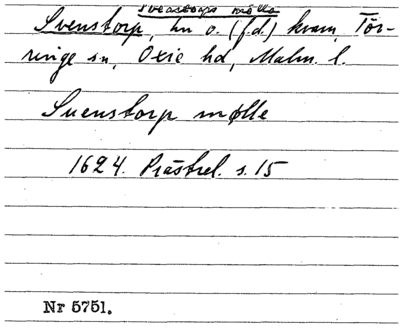 Svenstorps mölla
Svenstorp, hn o. (f.d.) kvarn, Tör-
ringe sn, Oxie hd, Malm. l.
Suenstorp mølle
1624. Prästrel. s. 15
Nr 5751.